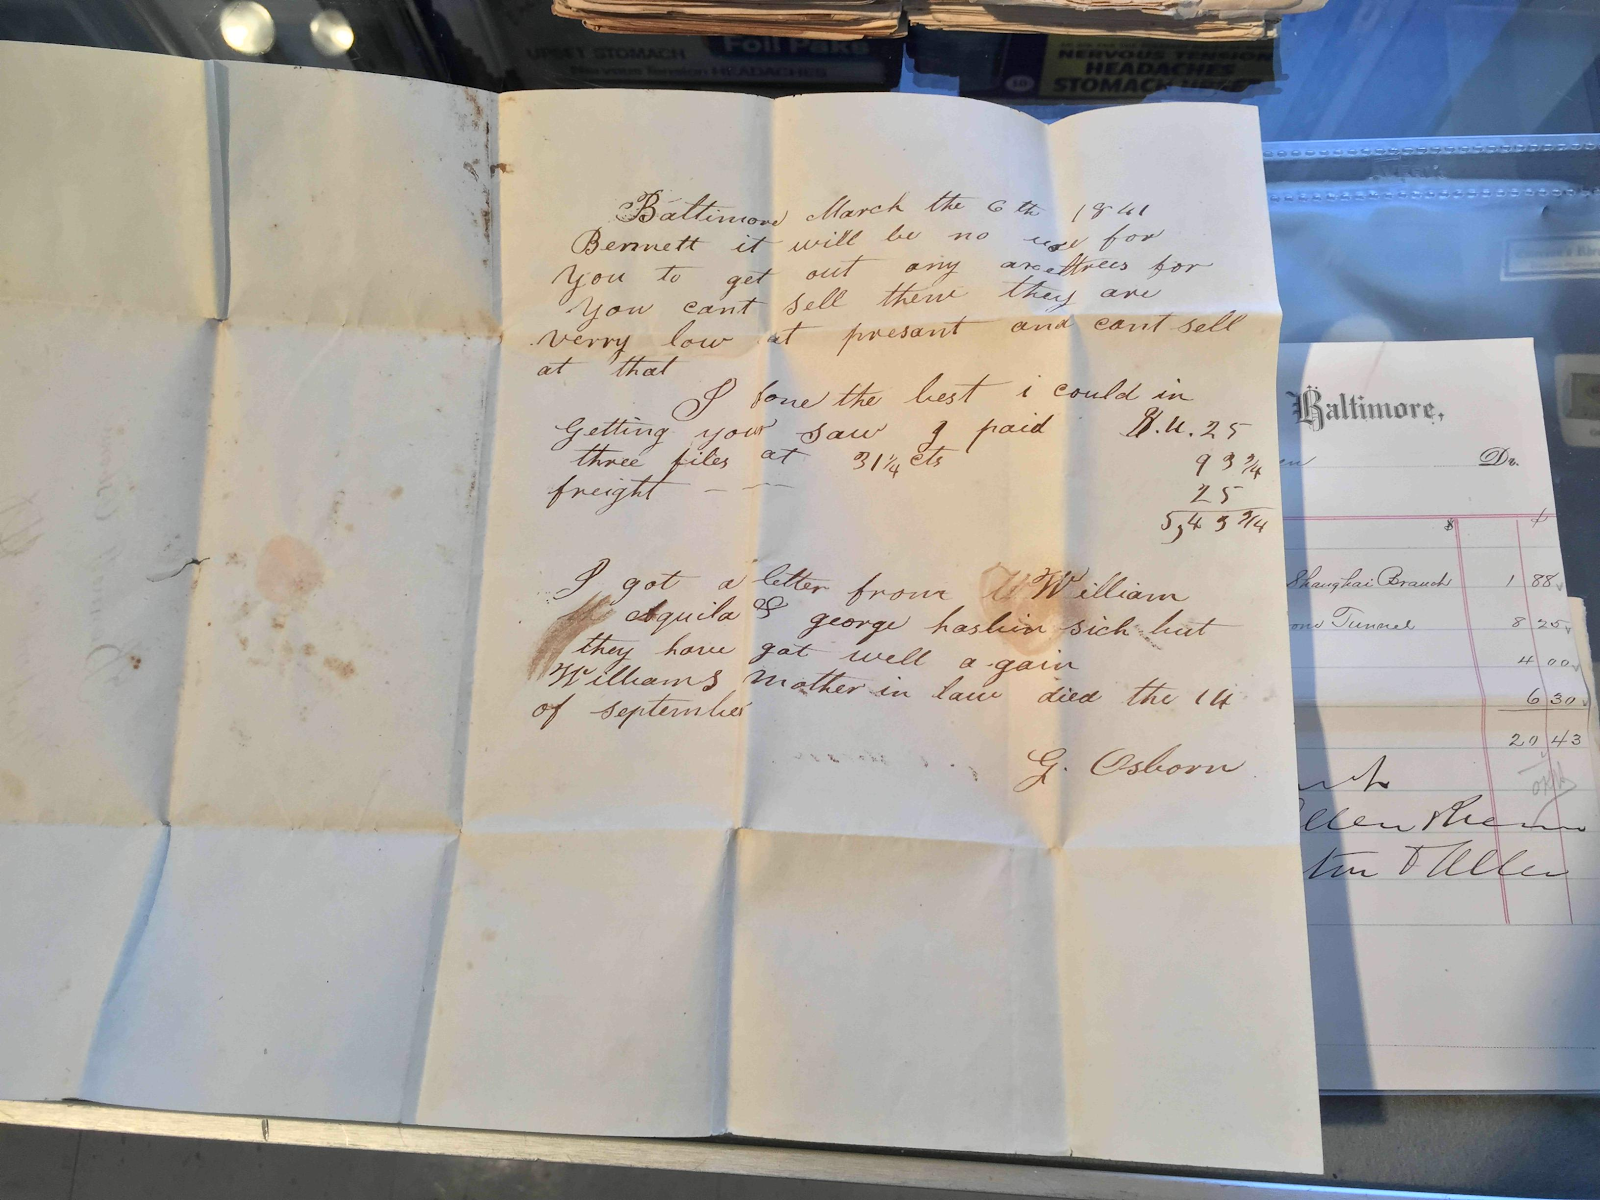 UPSET STOMACH
Foil Paks
Nervous Tension HEADACHES
NERVOUS TENSION
HEADACHES
STOMACH UPSET
Baltimore March the 6 th 1841
Bennett it will be no use for
you to get out any axeltrees for
you cant sell them they are
verry low at presant and cant sell
at that
I done the best i could in
Getting your saw I paid 4.25
three files at 31 1/4 cts 93 3/4
freight - - - 25
5,43 3/4
I got a letter from William
Aquila & george haskin sick but
they have got well a gain
Williams mother in law died the 14
of september
G. Osborn
Baltimore,
Dr.
$
Shanghai Branch 1 88
Tunnel 8 25
4 00
6 30
20 43